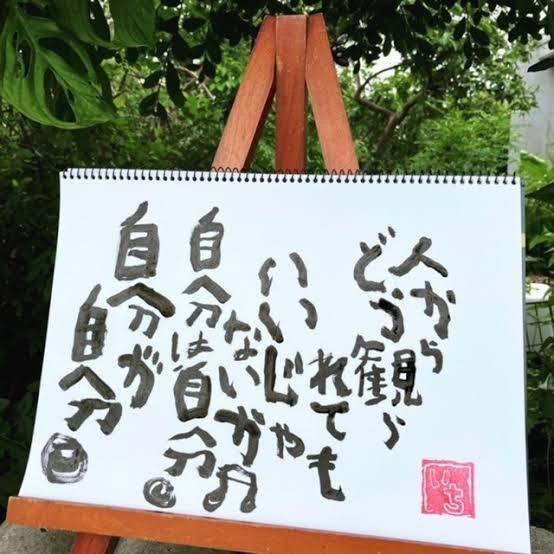 人から
どう観ら
れても
いいじゃ
ないか♫
自分は自分
自分が
自分
いち